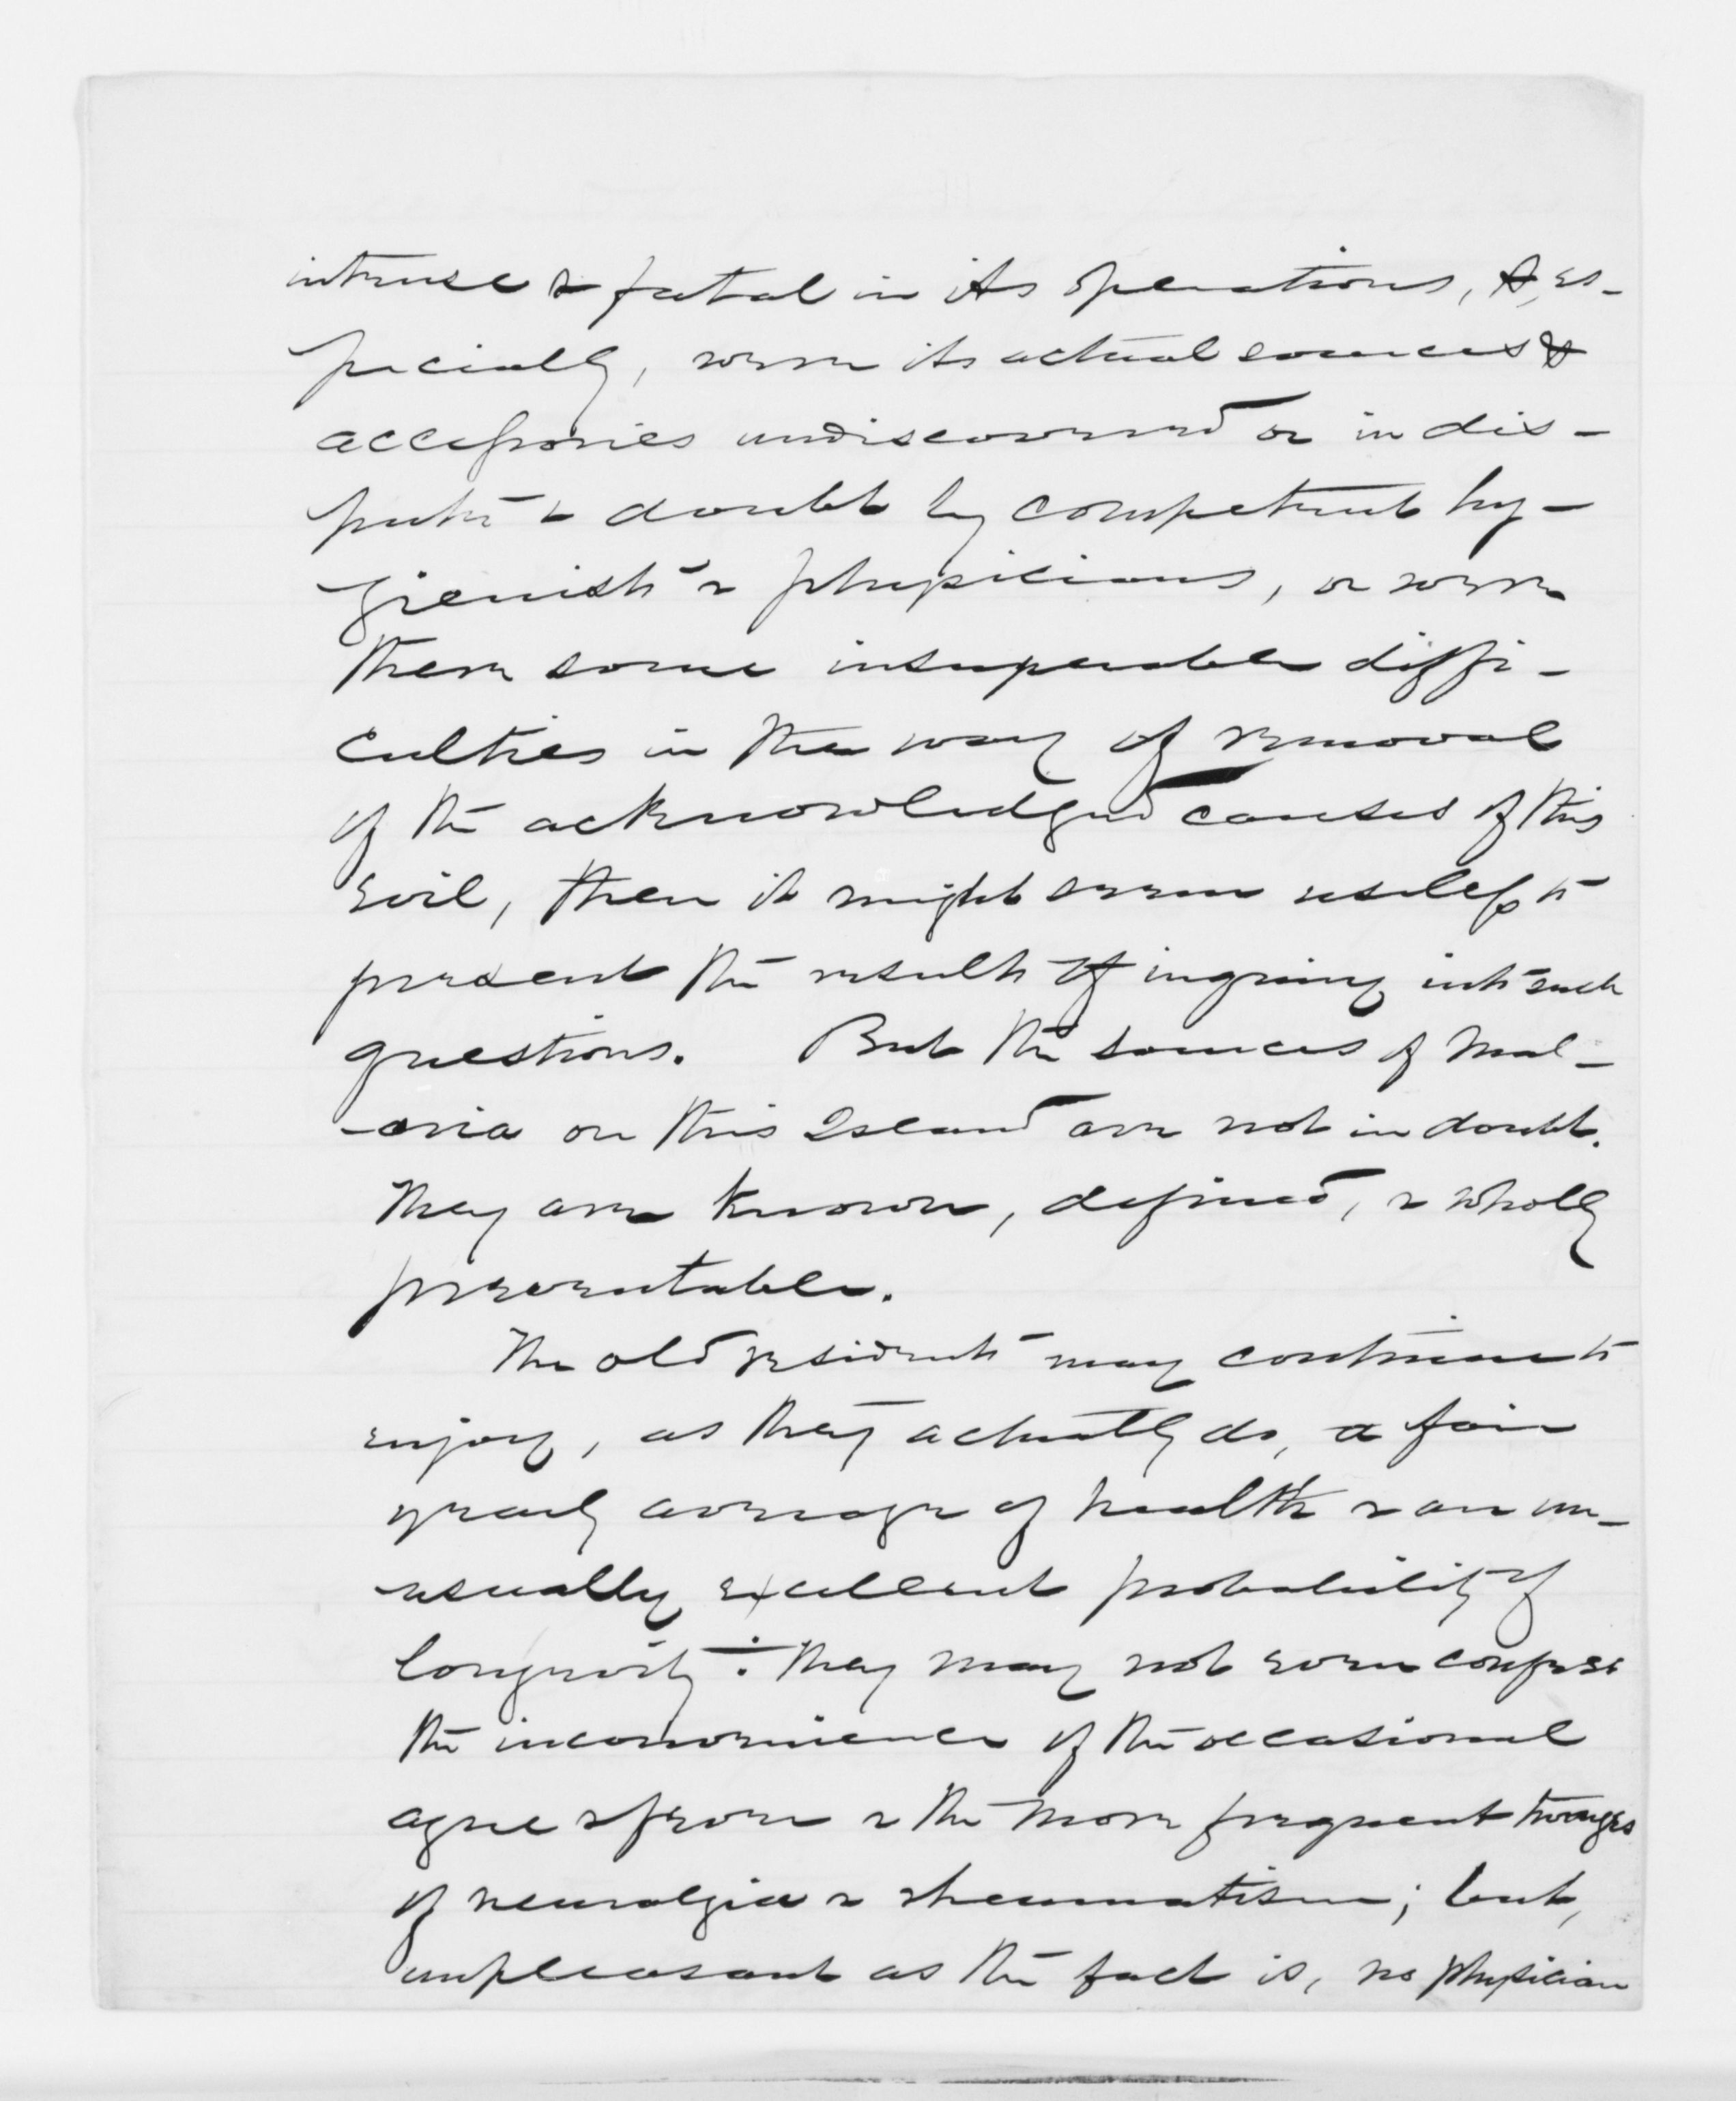 intense & fatal in its operations, &, es-
pecially, were its actual sources &
accessories undiscovered or in dis-
pute & doubt by competent hy-
gienists & physicians, or were
there some insuperable diffi-
culties in the way of removal
of the acknowledged causes of this
evil, then it might seem useless to
present the results of inquiry into such
questions. But the sources of Mal-
-aria on this Island are not in doubt.
They are known, defined, & wholly
preventable.
The old residents may continue to
enjoy, as they actually do, a fair
yearly average of health & an un-
usually excellent probability of
longevity: They may not even confess
the inconvenience of the occasional
ague & fever & the more frequent twinges
of neuralgia & rheumatism; but,
unpleasant as the fact is, no physician